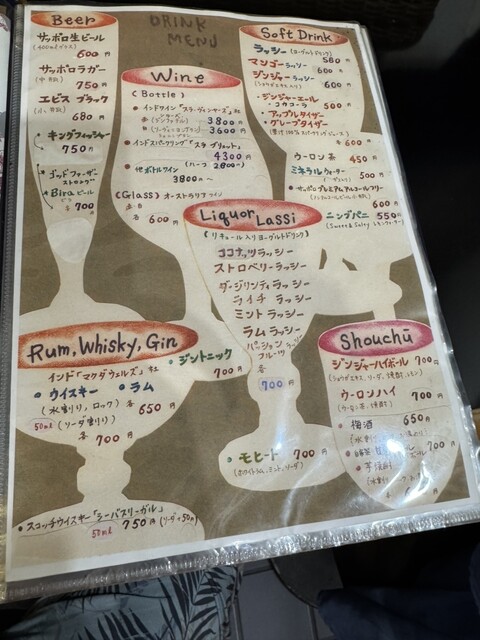 DRINK
MENU
Beer
サッポロ生ビール
600円
サッポロラガー
750円
エビス ブラック
680円
キングフィッシャー
750円
ゴッドファーザー
Bira ビール
各 700
Wine
(Bottle)
3800円
3600円
4300円
他ボトルワイン
3800円〜
(Glass) オーストラリア
各 600円
Soft Drink
ラッシー (ヨーグルトドリンク) 580円
マンゴーラッシー 600円
ジンジャーラッシー 600円
・ジンジャーエール
・コカコーラ 500円
・アップルタイザー
・グレープタイザー
600円
ウーロン茶 450円
ミネラルウォーター
500円
600円
ニンブパニ 550円
Liquor Lassi
(リキュール入りヨーグルトドリンク)
ココナッツラッシー
ストロベリーラッシー
ダージリンティラッシー
ライチ ラッシー
ミント ラッシー
ラム ラッシー
パッションフルーツ
各
700円
・モヒート 700円
(ホワイトラム、ミント、ソーダ)
Rum, Whisky, Gin
インド「マクダウェルズ」社
・ウイスキー ・ラム
(水割り、ロック) 各 650円
50ml (ソーダ割り)
各 700円
・ジントニック
700円
・スコッチウイスキー「シーバスリーガル」
50ml 750円 (ソーダ+50円)
Shouchū
ジンジャーハイボール 700円
ウーロンハイ 700円
(ウーロン茶、焼酎)
・梅酒 650円
700円
・芋焼酎